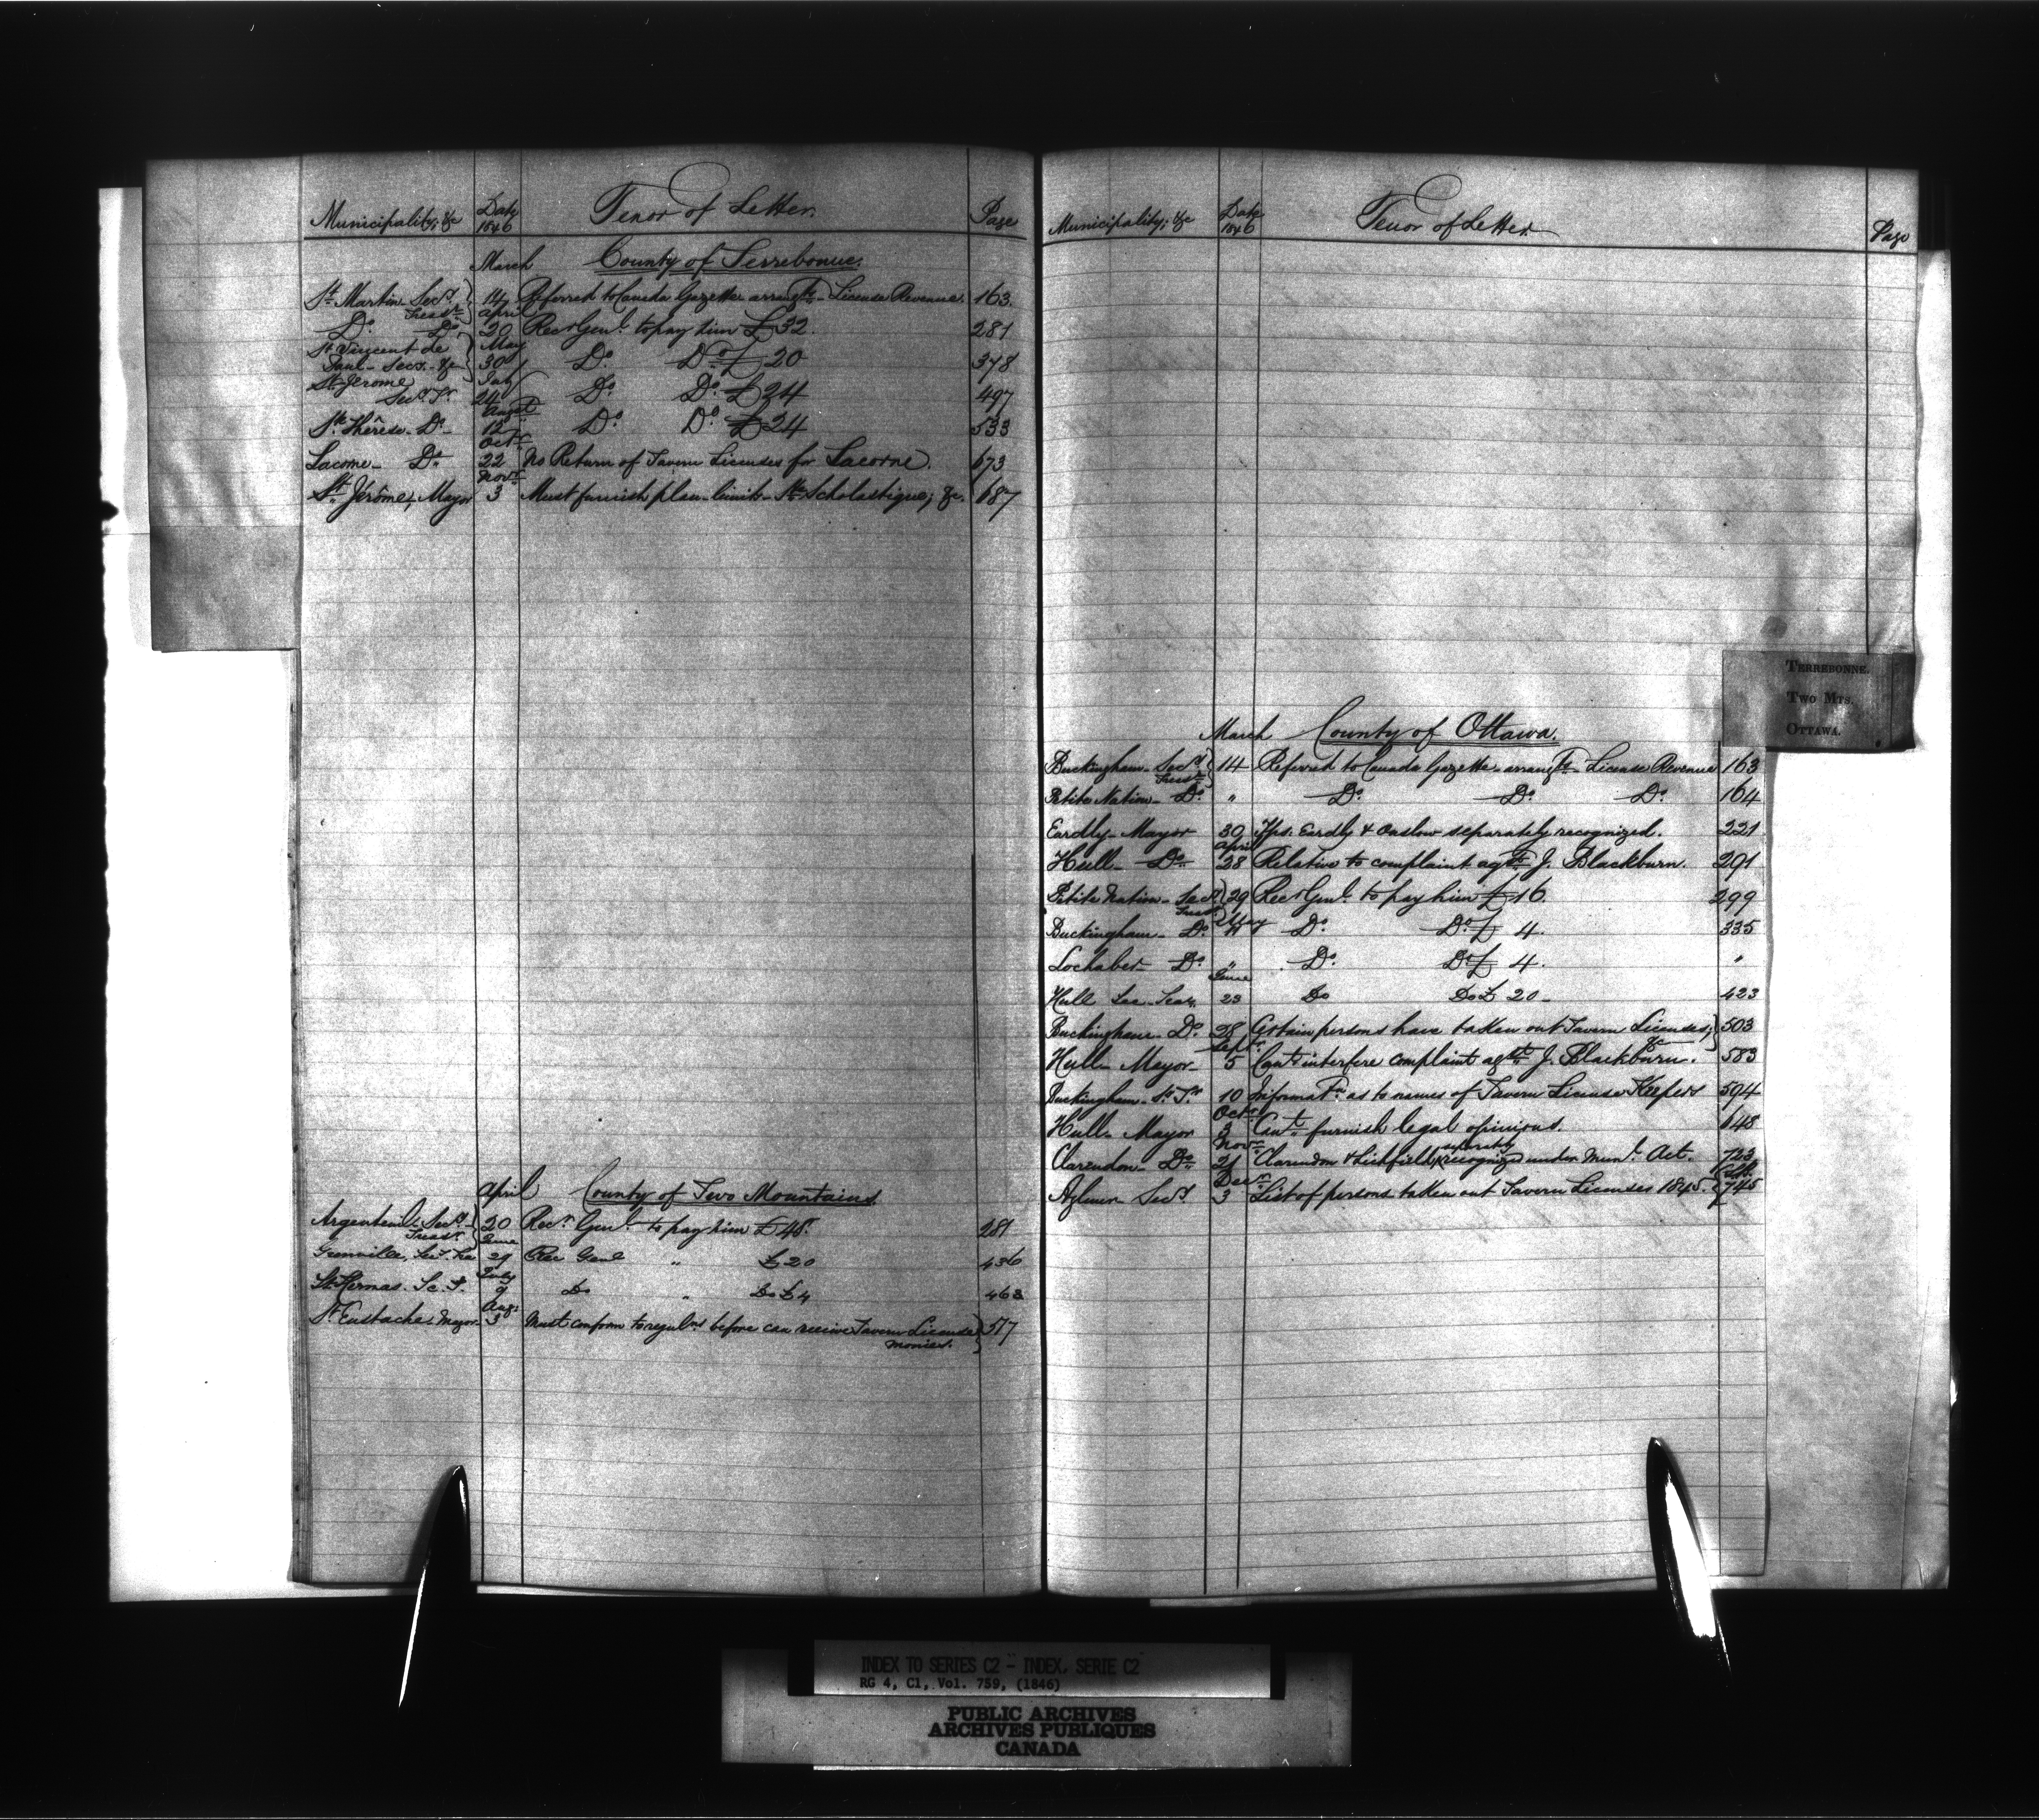 Municipality, &c Date 1846 Tenor of Letter. Page
March County of Terrebonne.
St. Martin Secy. Treasr. 14 Referred to Canada Gazette arrangts. License Revenue. 163.
April
Do. Do. 20 Recr. Genl. to pay him £32. 281
May
St. Vincent de Paul - Secy. &c 30 Do. Do. £20 378
July
St. Jerome Secy. Tr. 24 Do. Do. £24 497
Augst.
Ste. Thérèse - Do. 12 Do. Do. £24 533
Octr.
Lacorne - Do. 22 No Return of Tavern Licenses for Lacorne. 673
Novr.
St. Jérôme, Mayor 3 Must furnish plan limits Ste. Scholastique; &c. 687
April County of Two Mountains.
Argenteuil - Secy. Treasr. 20 Recr. Genl. to pay him £48. 281
June
Grenville, Sec. Trea 29 Rec Genl " £20 436
July
St. Hermas. Sc. T. 9 Do " Do £4 463
Aug:
St. Eustache, Mayor 3 Must conform to regulns. before can receive Tavern License monies. 517
Municipality; &c Date 1846 Tenor of Letter. Page
TERREBONNE.
TWO MTS.
OTTAWA.
March County of Ottawa.
Buckingham - Secy. Treasr. 14 Referred to Canada Gazette - arrangts. - License Revenue 163
Petite Nation - Do. " Do. Do. Do. 164
Eardly - Mayor 30 Tps. Eardly & Onslow separately recognized. 221
April
Hull - Do. 28 Relative to complaint agst. J. Blackburn. 291
Petite Nation - Secy. Treasr. 29 Recr. Genl. to pay him £16. 299
May
Buckingham - Do. 11 Do. Do. £ 4. 335
Lochaber - Do. " Do. Do. £ 4. "
June
Hull Sec - Trea. 23 Do Do £ 20 - 423
Buckingham - Do. 28 Certain persons have taken out Tavern Licenses, &c 503
Septr.
Hull - Mayor - 5 Can't interfere complaint agst. J. Blackburn. 583
Buckingham - S. Tr. 10 Informatn. as to names of Tavern License Keepers 594
Octr.
Hull - Mayor 3 Can't furnish legal opinions. 648
Novr.
Clarendon - Do. 21 Clarendon & Lichfield separately recognized under Munl. Act. 723
Decr.
Aylmer - Secy. 3 List of persons taken out Tavern Licenses 1845. 745
INDEX TO SERIES C2 - INDEX, SERIE C2
RG 4, C1, Vol. 759, (1846)
PUBLIC ARCHIVES
ARCHIVES PUBLIQUES
CANADA